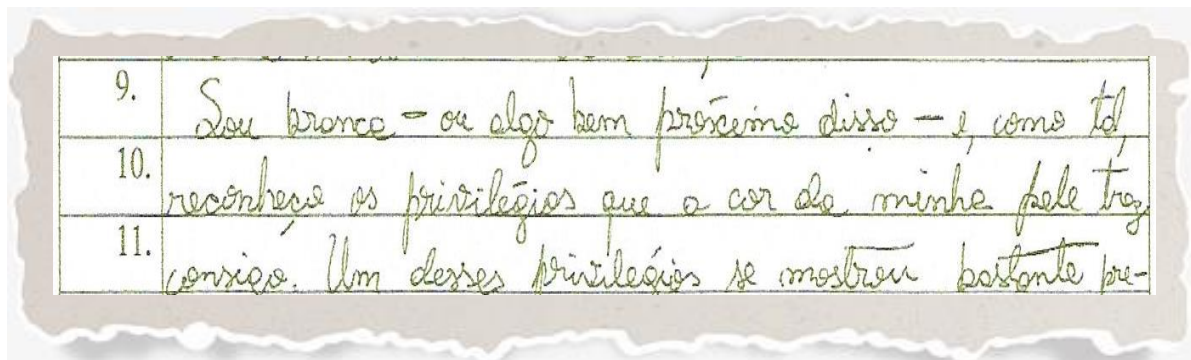 9. Sou branco - ou algo bem próximo disso - e, como tal,
10. reconheço os privilégios que a cor da minha pele traz
11. consigo. Um desses privilégios se mostrou bastante pre-